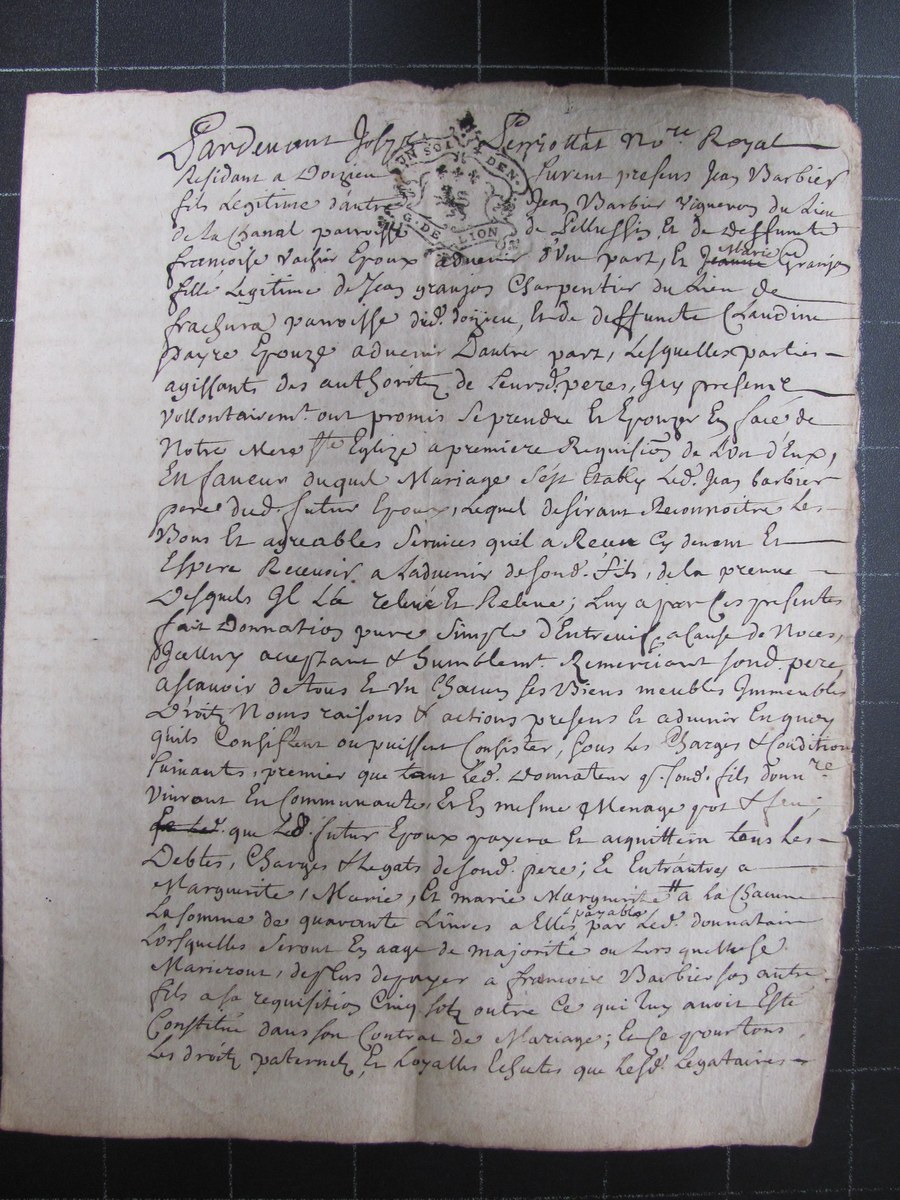 Pardevant Joseph Perrottat No.re Royal
Residant a Doizieu furent presens Jean Barbier
fils Legitime d'autre Jean Barbier Vigneron du Lieu
de La Chanal parroisse de Pellussin Et de deffuncte
françoise Vachier Epoux advenir d'Une part, Et Jeanne Marie Granjon
fille Legitime de Jean granjon Charpentier du Lieu de
frachura parroisse dud. doizieu, Et de deffuncte Claudine
payre Epouze advenir D'autre part, Lesquelles parties
agissants des authoritez de Leursd. peres, Icy presens
Vollontairem.t ont promis Se prendre Et Epouzer En face de
Notre Mere S.te Eglize a premiere Requision de L'Un d'Eux,
En faveur duquel Mariage S'est Estably Led. Jean barbier
pere dud. futur Epoux, Lequel desirant Reconnoitre Les
Bons Et agreables Services qu'il a Receu Cy devant Et
Espere Recevoir a Ladvenir de sond. fils, de la preuve
Desquels Il L'a relevé Et Releve; Luy a par Ces presentes
fait Donnation pure Simple d'Entrevifs, a Cause de Noces,
Iceluy aceptant & humblem.t Remerciant sond. pere,
ascavoir de tous Et Un Chacun Ses Biens meubles Immeubles
Droitz Noms raisons & actions presens Et advenir En quoy
quils Consistent ou puissent Consister, sous Les Charges & Conditions
suivantes, premier que tant Led. Donnateur q. sond. fils donn.re
Vivront En Communauté Et En mesme Menage pot & feu;
que Led. futur Epoux payera Et acquittera tous Les
Debtes, Charges & Legats de sond. pere; Et Entr'autres a
Marguerite, Marie, Et marie Marguerite # a la Chacune
La somme de quarante Livres a Elles payable par Led. donnataire
Lorsquelles seront En aage de majorité ou Lors quelles se
Marieront, de plus de payer a françois Barbier son autre
fils a sa requisition Cinq solz outre Ce qui luy avoit Esté
Constitué dans son Contrat de Mariage; Et Ce pour tous
Les droitz paternels, Et Loyalles Eschutes que Lesd. Legataires
UN SOL
DEN.
G. DE LION